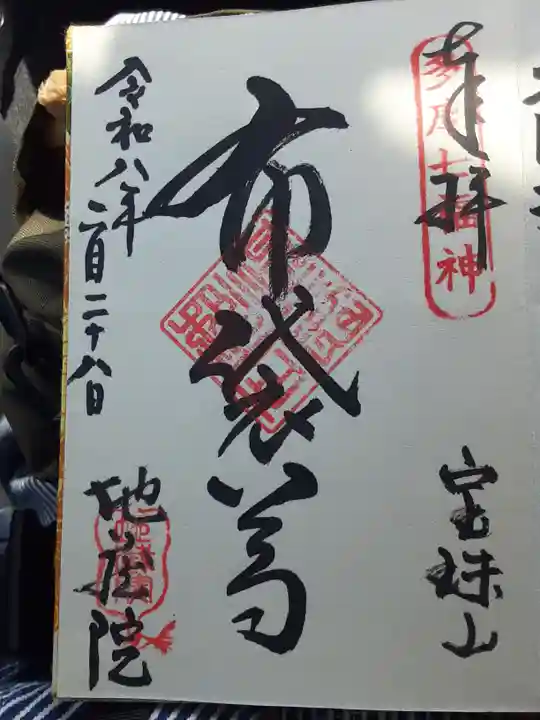 奉拝
多摩七福神
宝珠山
布袋尊
令和八年二月二十八日
地蔵院